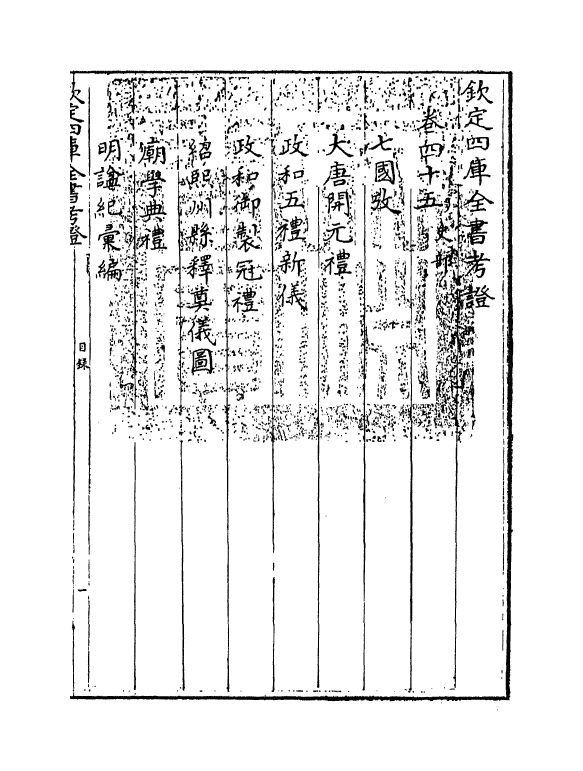 欽定四庫全書考證
卷四十五 史部
七國攷
大唐開元禮
政和五禮新儀
政和御製冠禮
紹熙州縣釋奠儀圖
廟學典禮
明諡紀彙編
欽定四庫全書考證
目錄
一